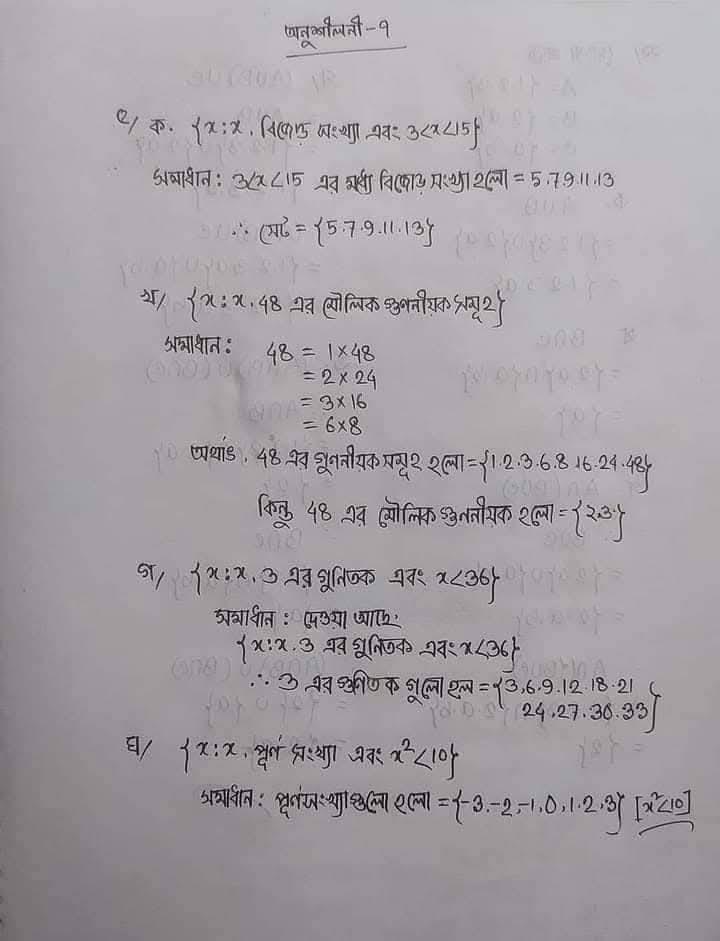 অনুশীলনী-৭
২/ ক. {x:x, বিজোড় সংখ্যা এবং 3<x<15}
সমাধান: 3<x<15 এর মধ্য বিজোড় সংখ্যা হলো = 5.7.9.11.13
∴ সেট = {5.7.9.11.13}
খ/ {x:x, 48 এর মৌলিক গুণনীয়ক সমূহ}
সমাধান: 48 = 1×48
= 2×24
= 3×16
= 6×8
অর্থাৎ, 48 এর গুননীয়ক সমূহ হলো={1.2.3.6.8.16.24.48}
কিন্তু 48 এর মৌলিক গুননীয়ক হলো={2.3}
গ/ {x:x, 3 এর গুনিতক এবং x<36}
সমাধান: দেওয়া আছে,
{x:x.3 এর গুনিতক এবং x<36}
∴ 3 এর গুণিতক গুলো হল = {3,6.9.12.18.21
24.27.30.33}
ঘ/ {x:x, পূর্ণ সংখ্যা এবং x²<10}
সমাধান: পূর্ণসংখ্যাগুলো হলো={-3.-2,-1,0,1.2.3} [x²<10]